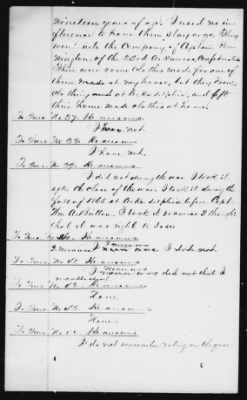 nineteen years of age. I used no in-
fluence to have them stay or go. They
went into the Company of Captain Pen-
nington of the 23rd Arkansas Confederate
There were some clothes made for one of
them made at my house, but they drew
clothing and at Arkadelphia, and left
their home made clothes at home.
To Question No 27. He answers
I have not.
To Ques No 28. He answers
I have not.
To Ques. No 29. He answers
I did not during the war. I took it
after the close of the war. I took it during the
fall of 1865 at Arkadelphia before Capt.
Wm. I took it because I thought
that it was right to do so
To Ques No 30. He answers
I did not.
To Ques No 31. He answers
I did not that I
recollect
To Ques No 32 He answers
None
To Ques No He answers
None.
To Ques No He answers
I do not remember voting in the year